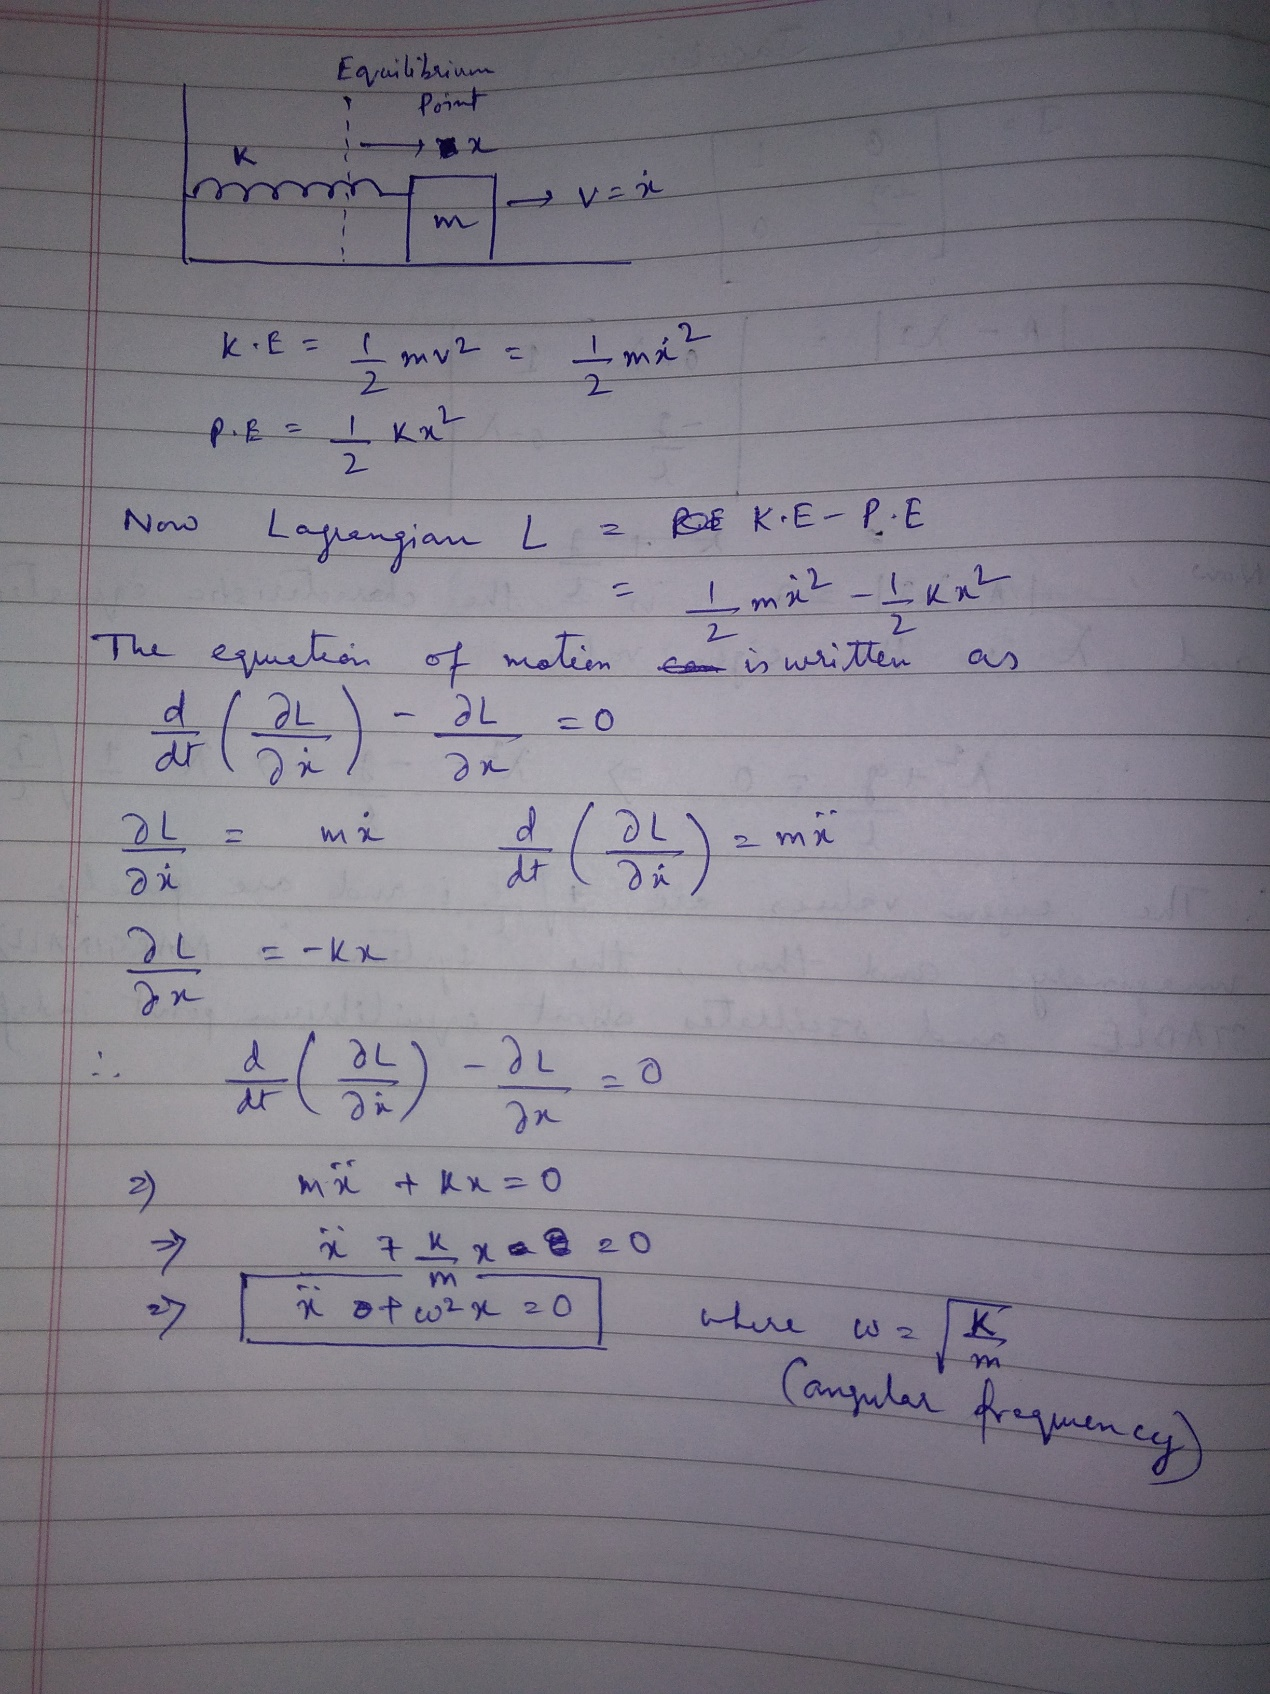 Equilibrium
Point
K
→ x
m
→ v = ẋ
K.E = 1/2 mv² = 1/2 mẋ²
P.E = 1/2 Kx²
Now Lagrangian L = K.E - P.E
= 1/2 mẋ² - 1/2 Kx²
The equation of motion is written as
d/dt (∂L/∂ẋ) - ∂L/∂x = 0
∂L/∂ẋ = mẋ d/dt (∂L/∂ẋ) = mẍ
∂L/∂x = -Kx
∴ d/dt (∂L/∂ẋ) - ∂L/∂x = 0
⇒ mẍ + Kx = 0
⇒ ẍ + K/m x = 0
⇒ ẍ + ω²x = 0 where ω = √(K/m)
(angular frequency)